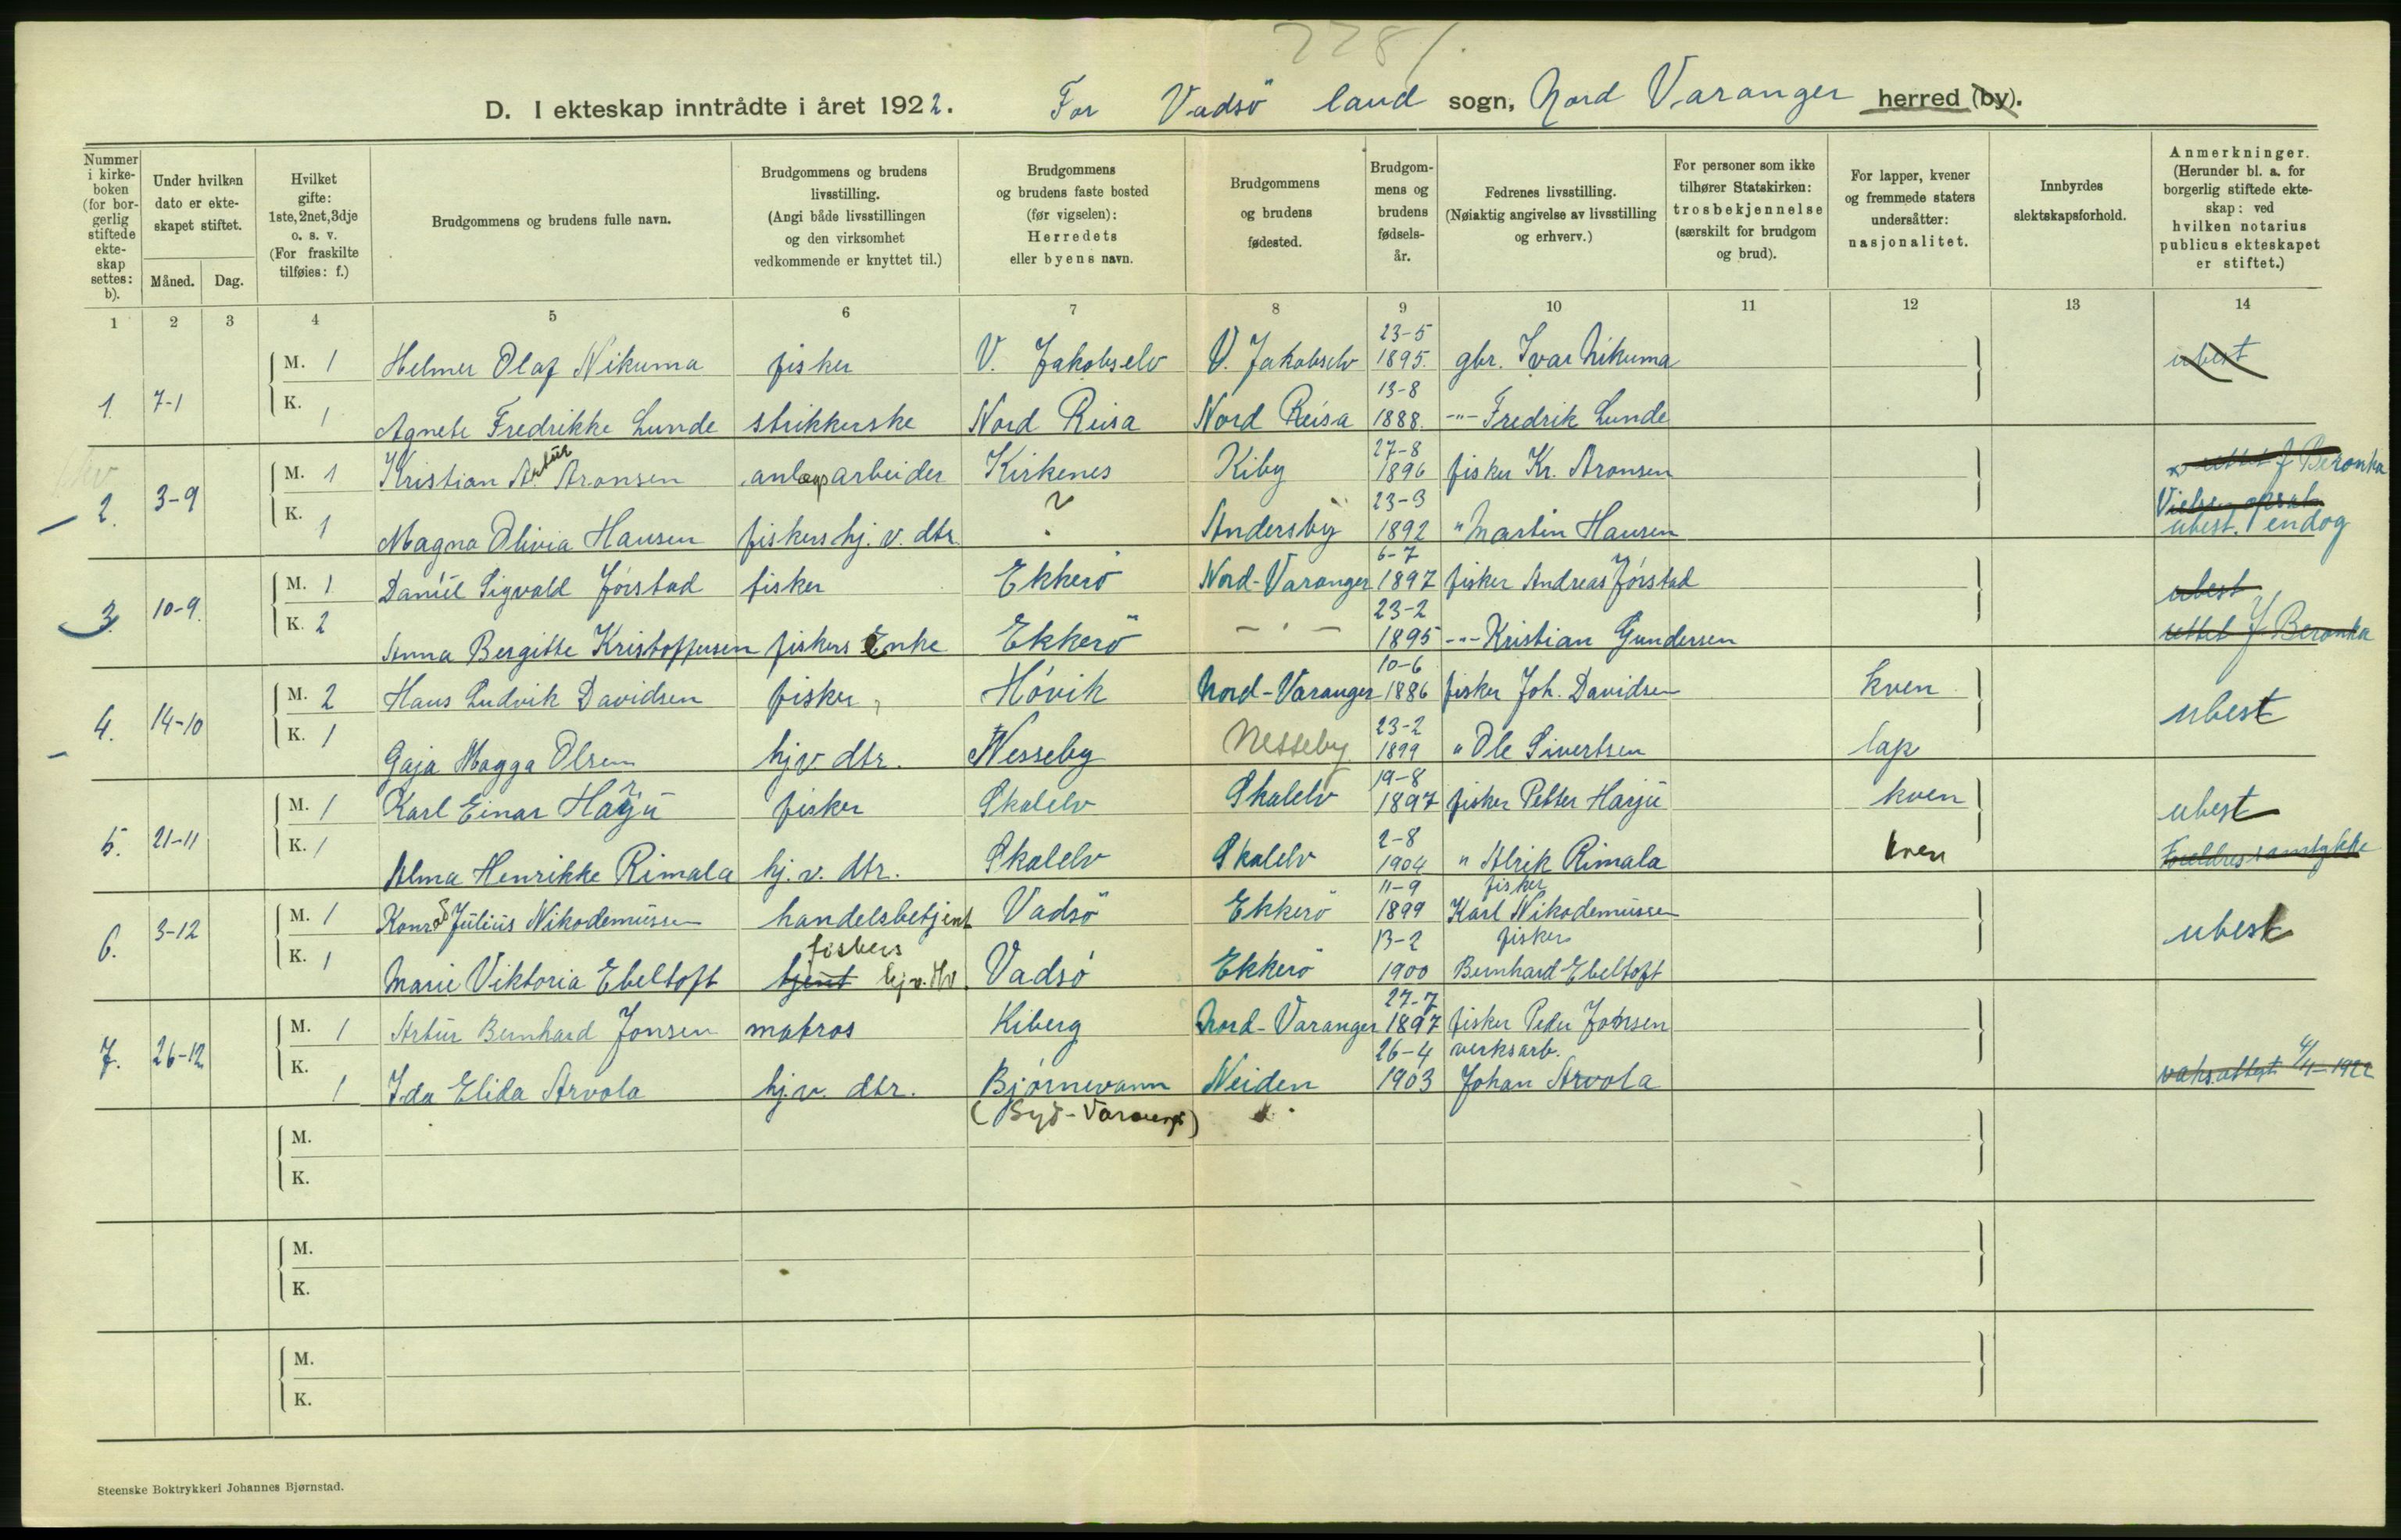 228/.
D. I ekteskap inntrådte i året 1922. For Vadsö land sogn, Nord Varanger herred (by).
Nummer i kirkeboken (for borgerlig stiftede ekteskap settes: b).
Under hvilken dato er ekteskapet stiftet.
Måned. Dag.
Hvilket gifte: 1ste, 2net, 3dje o. s. v. (For fraskilte tilføies: f.)
Brudgommens og brudens fulle navn.
Brudgommens og brudens livsstilling. (Angi både livsstillingen og den virksomhet vedkommende er knyttet til.)
Brudgommens og brudens faste bosted (før vigselen): Herredets eller byens navn.
Brudgommens og brudens fødested.
Brudgommens og brudens fødselsår.
Fedrenes livsstilling. (Nøiaktig angivelse av livsstilling og erhverv.)
For personer som ikke tilhører Statskirken: trosbekjennelse (særskilt for brudgom og brud).
For lapper, kvener og fremmede staters undersåtter: nasjonalitet.
Innbyrdes slektskapsforhold.
Anmerkninger. (Herunder bl. a. for borgerlig stiftede ekteskap: ved hvilken notarius publicus ekteskapet er stiftet.)
1 2 3 4 5 6 7 8 9 10 11 12 13 14
1. 7-1 M. 1 Helmer Olaf Nikuma fisker V. Jakobselv V. Jakobselv 23-5 1895. gbr. Ivar Nikuma ubest
K. 1 Agnete Fredrikke Lunde strikkerske Nord Reisa Nord Reisa 13-8 1888. -"- Fredrik Lunde
2. 3-9 M. 1 Kristian Artur Aronsen anlægsarbeider Kirkenes Kiby 27-8 1896 fisker Kr. Aronsen rettet J Beronka
K. 1 Magna Olivia Hansen fiskers hj. v. dtr. ? Andersby 23-3 1892 " Martin Hansen ubest. endog
3. 10-9. M. 1 Daniel Sigvald Jörstad fisker Ekkerö Nord-Varanger 6-7 1897 fisker Andreas Jörstad ubest
K. 2 Anna Bergitte Kristoffersen fiskers Enke Ekkerö -"- 23-2 1895 -"- Kristian Gundersen rettet J. Beronka
4. 14-10 M. 2 Hans Ludvik Davidsen fisker, Hövik Nord-Varanger 10-6 1886 fisker Joh. Davidsen kven ubest
K. 1 Gaja Magga Olsen hj.v. dtr. Nesseby Nesseby 23-2 1899 " Ole Sivertsen lap
5. 21-11 M. 1 Karl Einar Harju fisker Skalelv Skalelv 19-8 1897 fisker Petter Harju kven ubest
K. 1 Alma Henrikke Rimala hj. v. dtr. Skalelv Skalelv 2-8 1904 " Alrik Rimala kven Foreldres samtykke
6. 3-12 M. 1 Konrad Julius Nikodemussen handelsbetjent Vadsö Ekkerö 11-9 1899 fisker Karl Nikodemussen ubest
K. 1 Marie Viktoria Ebeltoft tjent fiskers hj.v. dtr. Vadsö Ekkerö 13-2 1900 fisker Bernhard Ebeltoft
7. 26-12 M. 1 Artur Bernhard Jonsen matros Kiberg Nord-Varanger 27-7 1897 fisker Peder Jonsen
K. 1 Ida Elida Arvola hj.v. dtr. Björnevann Neiden 26-4 1903 verksarb. Johan Arvola vaks.attest 1922
(Syd-Varanger)
M.
K.
M.
K.
M.
K.
Steenske Boktrykkeri Johannes Bjørnstad.